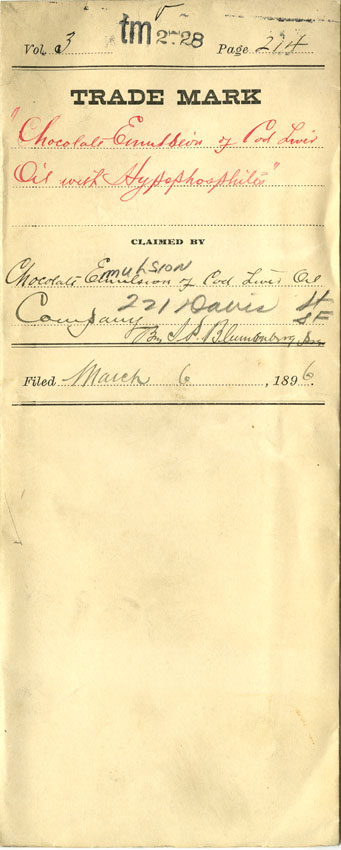 tm 2728
Vol. 3 Page 214
TRADE MARK
"Chocolate Emulsion of Cod Liver
Oil with Hypophosphites"
CLAIMED BY
mulsion
Chocolate Emulsion of Cod Liver Oil
Company 221 Davis St
SF
By S. P. Blumenberg
Filed March 6, 1896.